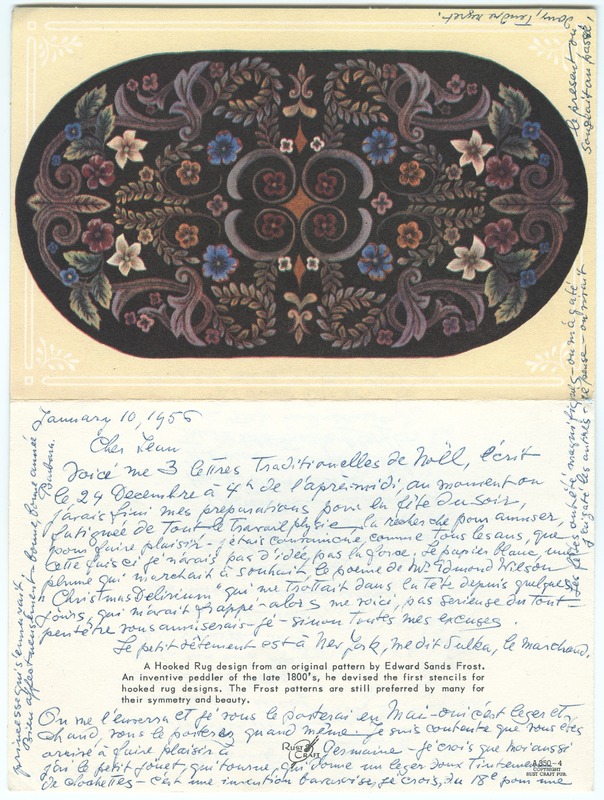 January 10, 1956
Cher Jean
Voicé me 3 lettres Traditionelles de Noël, écrit
le 24 Decembre à 4h de l'apresmidi, au moment ou
j'avais fini mes preparations pour la fête du soir,
fatiguée de tout le travail physic la recherche pour amuser,
pour faire plaisir - j'etais convaincue comme tous les ans, que
cette fois ci je n'avais pas d'idée, pas la force. Le papier blanc, une
plume qui marchait à souhait le poème de Mr Edmond Wilson
"Christmas Delirium" qui me trottait dans la tête depuis quelques
jours, qui m'avait frappé - alors me voici, pas serieuse du tout -
peutêtre vous amuserais-je - sinon toutes mes excuses
Le petit vêtement est à New York, me dit Sulka, le marchand.
A Hooked Rug design from an original pattern by Edward Sands Frost.
An inventive peddler of the late 1800's, he devised the first stencils for
hooked rug designs. The Frost patterns are still preferred by many for
their symmetry and beauty.
On me l'enverra et je vous le porterai en Mai - oui c'est leger et
chaud, vous le porterez quand même - je suis contente que vous êtes
arrivé à faire plaisir à Germaine - je crois que moi aussi
RUST CRAFT
j'ai le petit jouet, qui tourne, qui donne un leger doux Tintement
A 550-4
COPYRIGHT
RUST CRAFT PUB.
de clochettes - c'est une invention bavaroise, je crois, du 18e pour une
princesse qui s'ennuyait.
Bien affectueusement - bonne, bonne année
Barbara.
Les fêtes ont été magnifiques - on m'a gaté
j'ai gaté les autres - je pense - on vivait
le present ou
songeait au passé,
sans, tendre regret.